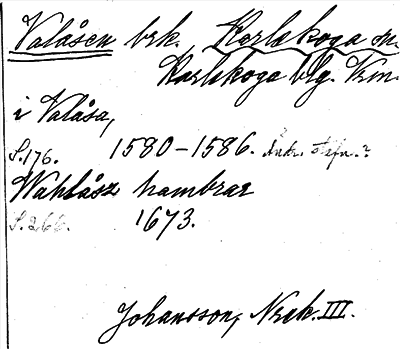 Valåsen brk. Karlskoga sn.
Karlskoga blg. Vrm.
i Valåsa,
S. 176. 1580-1586. Änk. stefn.?
Wahlåsz hambrar
S. 266. 1673.
Johansson, Nerk. III.